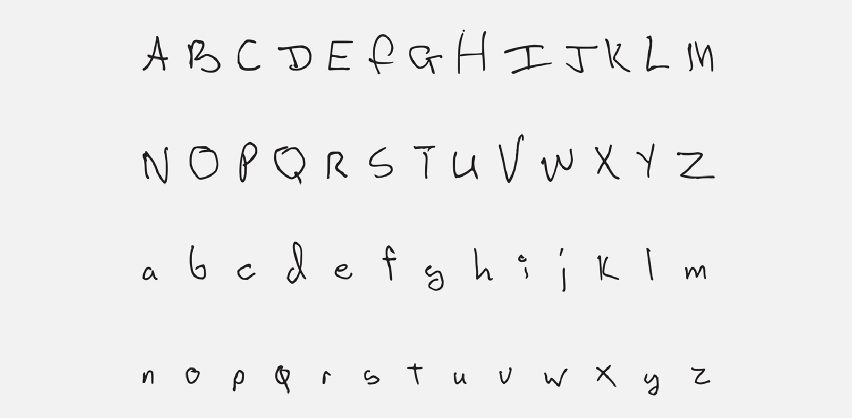 A B C D E F G H I J K L M
N O P Q R S T U V W X Y Z
a b c d e f g h i j k l m
n o p q r s t u v w x y z